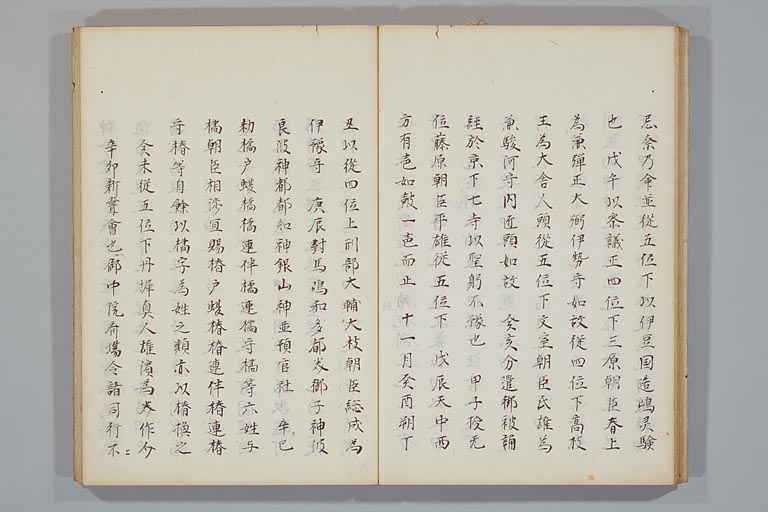 忌奈乃命並従五位下以伊豆国造嶋霊験
也　戊午以参議正四位下三原朝臣春上
為兼弾正大弼伊勢守如故従四位下高枝
王為大舎人頭従五位下文室朝臣氏雄為
兼駿河守内匠頭如故　癸亥分遣御被誦
経於京下七寺以聖躬不豫也　甲子授无
位藤原朝臣平雄従五位下　戊辰天中西
方有声如鼓一声而止　十一月癸酉朔丁
丑以従四位上刑部大輔大枝朝臣総成為
伊豫守　庚辰対馬嶋和多都美御子神波
良波神都都知神銀山神並預官社　辛巳
勅橘戸蝮橘橘連伴橘連橘守橘等六姓与
橘朝臣相渉宜賜椿戸蝮椿椿連伴椿連椿
守椿等自餘以橘字為姓之類亦以椿換之
癸未従五位下丹墀真人雄濱為美作介
辛卯新嘗會也　御中院斎場令諸司行不